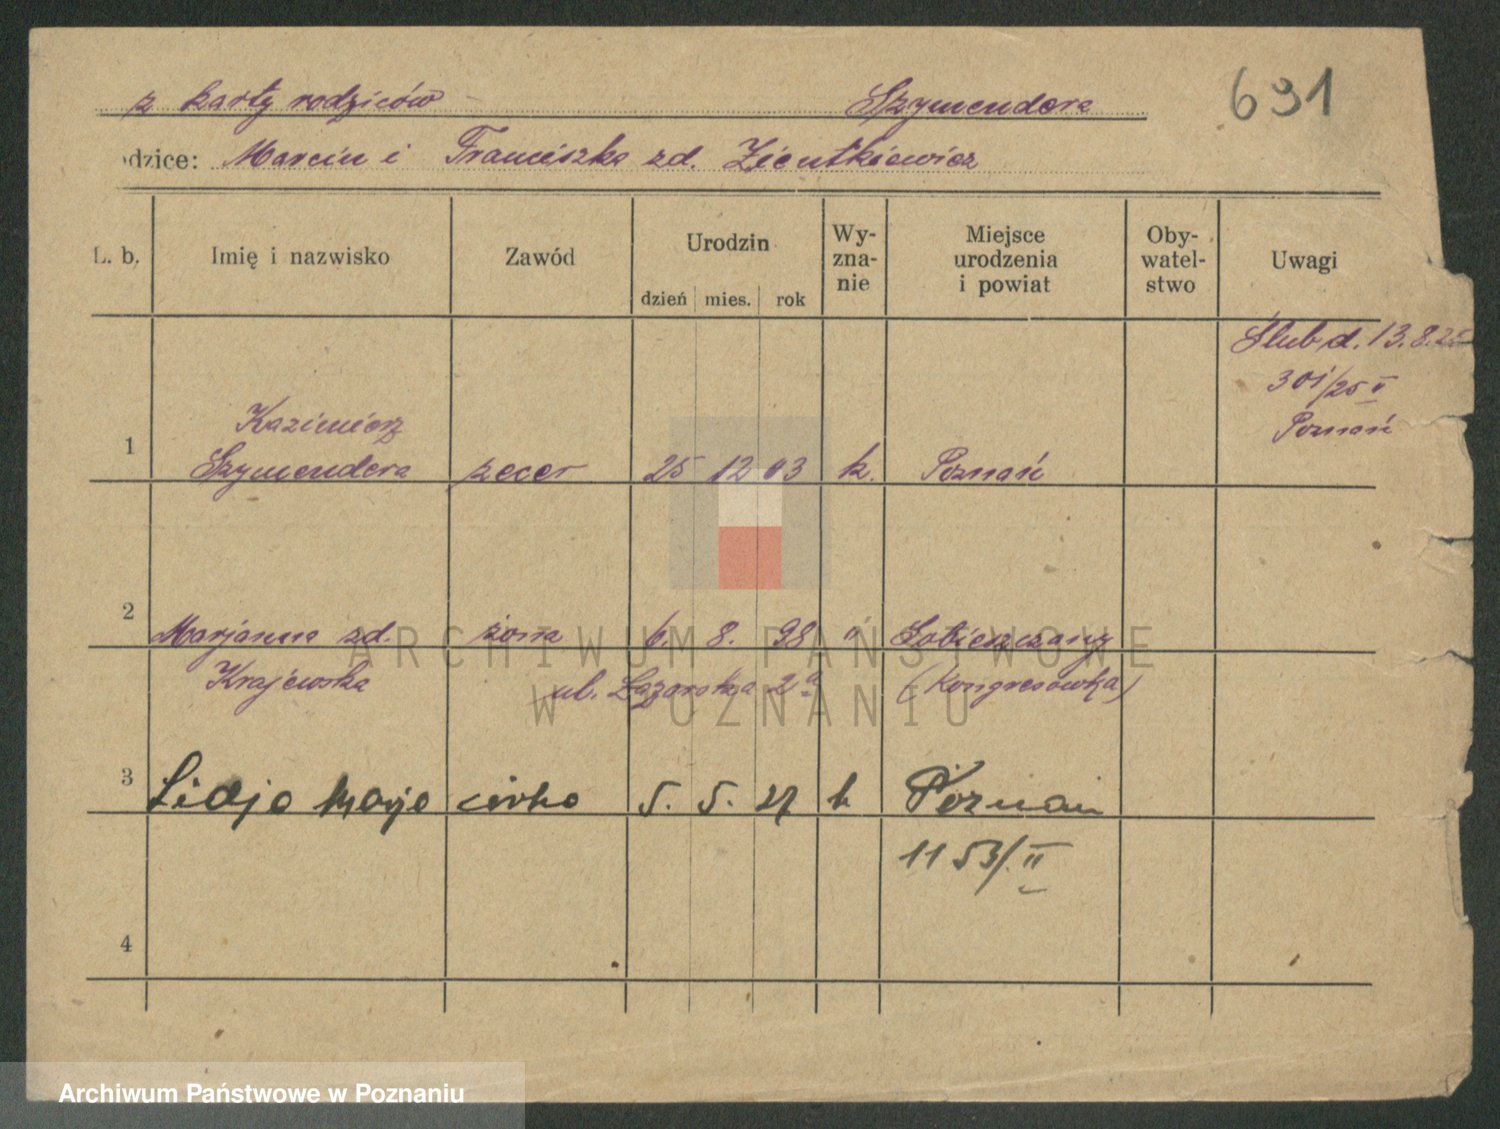 z karty rodziców Szymendera 691
odzice: Marcin i Franciszka zd. Zientkiewicz
L. b. Imię i nazwisko Zawód Urodzin Wy-zna-nie Miejsce urodzenia i powiat Oby-watel-stwo Uwagi
dzień mies. rok
Ślub d. 13.8.25
301/25 II
Poznań
Kazimierz
1 Szymendera zecer 25 12 03 k. Poznań
2 Marjanna zd. żona 6. 8. 98 " Sobieszczany
Krajewska ul. Łazarska 2a (Kongresówka)
3 Lidja Marja córka 5. 5. 27 k Poznań
1153/II
4
ARCHIWUM PAŃSTWOWE
W POZNANIU
Archiwum Państwowe w Poznaniu